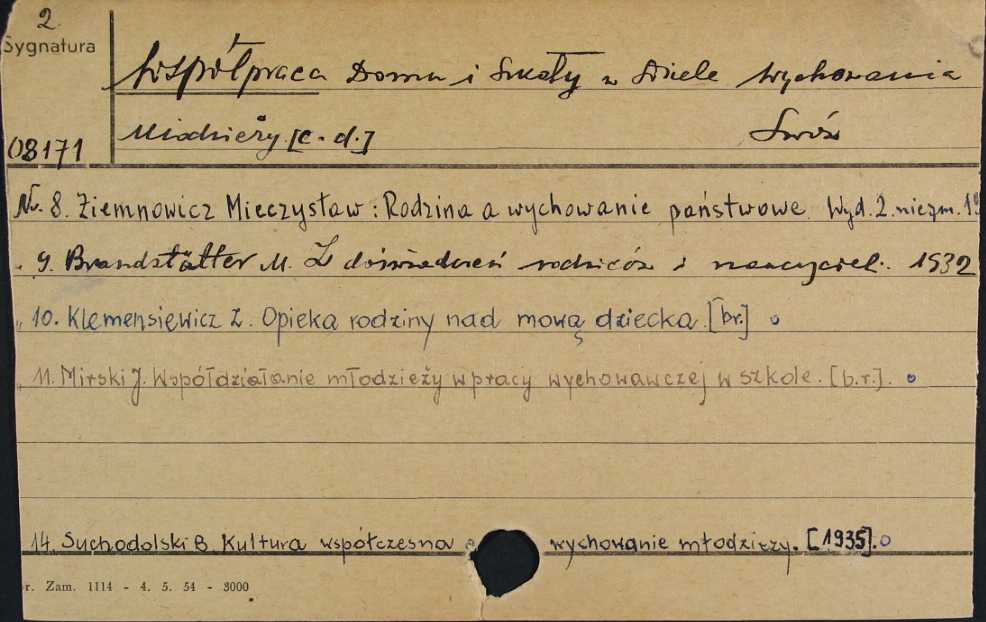 2
Sygnatura
Współpraca Domu i Szkoły w Dziele Wychowania
Młodzieży. [c. d.] Lwów
08171
Nr. 8. Ziemnowicz Mieczysław: Rodzina a wychowanie państwowe. Wyd. 2. niezm. 19
„ 9. Brandstätter M. Z doświadczeń rodziców i nauczyciel. 1932
„ 10. Klemensiewicz Z. Opieka rodziny nad mową dziecka. [br.]
„ 11. Mirski J. Współdziałanie młodzieży w pracy wychowawczej w szkole. [b.r.].
14. Suchodolski B. Kultura współczesna a wychowanie młodzieży. [1935].
r. Zam. 1114 - 4. 5. 54 - 3000